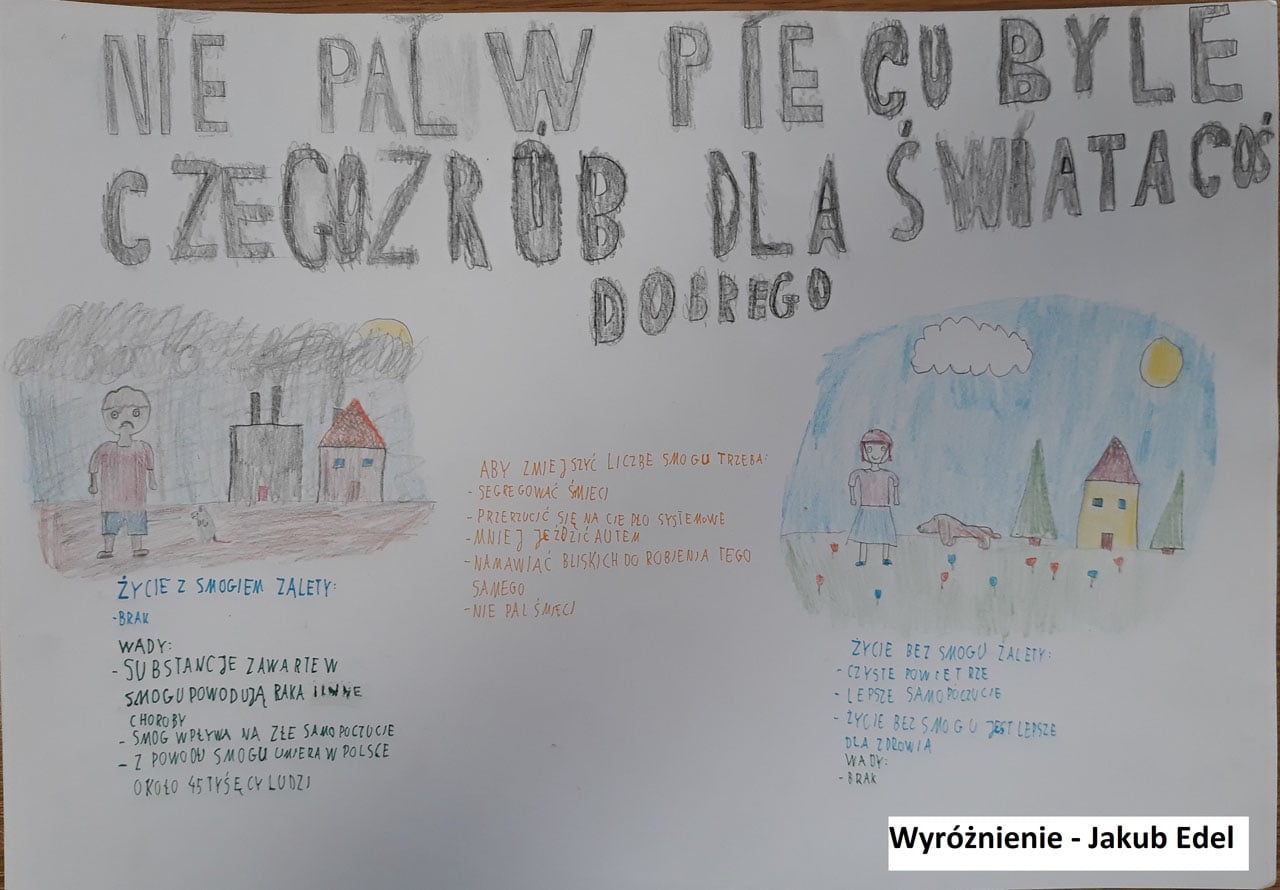 NIE PAL W PIECU BYLE
CZEGO ZRÓB DLA ŚWIATA COŚ
DOBREGO
ABY ZMIEJSZYĆ LICZBĘ SMOGU TRZEBA:
- SEGREGOWAĆ ŚMIECI
- PRZERZUCIĆ SIĘ NA CIEPŁO SYSTEMOWE
- MNIEJ JEŹDZIĆ AUTEM
- NAMAWIAĆ BLISKICH DO ROBIENIA TEGO
SAMEGO
- NIE PAL ŚMIECI
ŻYCIE Z SMOGIEM ZALETY:
- BRAK
WADY:
- SUBSTANCJE ZAWARTE W
SMOGU POWODUJĄ RAKA I INNE
CHOROBY
- SMOG WPŁYWA NA ZŁE SAMOPOCZUCIE
- Z POWODU SMOGU UMIERA W POLSCE
OKOŁO 45 TYŚĘCY LUDZI
ŻYCIE BEZ SMOGU ZALETY:
- CZYSTE POWIETRZE
- LEPSZE SAMOPOCZUCIE
- ŻYCIE BEZ SMOGU JEST LEPSZE
DLA ZDROWIA
WADY:
- BRAK
Wyróżnienie - Jakub Edel